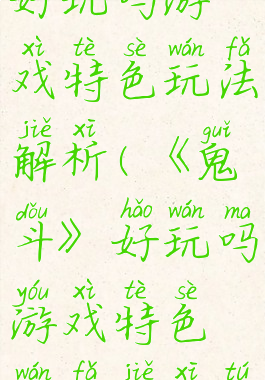 好玩吗游
xì tè sè wán fǎ
戏特色玩法
jiě xī guǐ
解析(《鬼
dǒu hǎo wán ma
斗》好玩吗
yóu xì tè sè
游戏特色
wán fǎ jiě xī tú